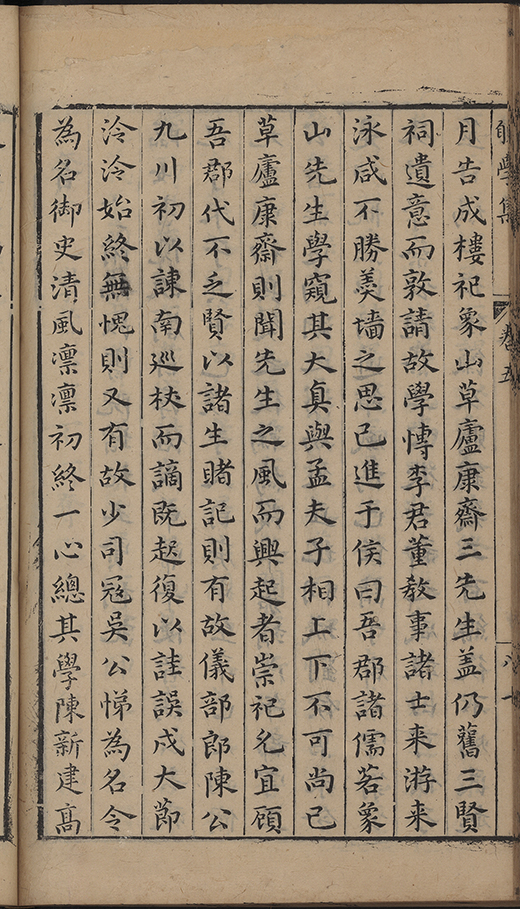 學集
卷五
八十
月告成樓祀象山草廬康齋三先生盖仍舊三賢
祠遺意而敦請故學愽李君董教事諸士来游来
泳咸不勝羮墻之思已進于侯曰吾郡諸儒若象
山先生學窺其大真與孟夫子相上下不可尚已
草廬康齋則聞先生之風而興起者崇祀允宜顧
吾郡代不乏賢以諸生睹記則有故儀部郎陳公
九川初以諫南巡杖而謫既起復以詿誤戍大節
泠泠始終無愧則又有故少司冦吳公悌為名令
為名御史清風凛凛初終一心總其學陳新建髙